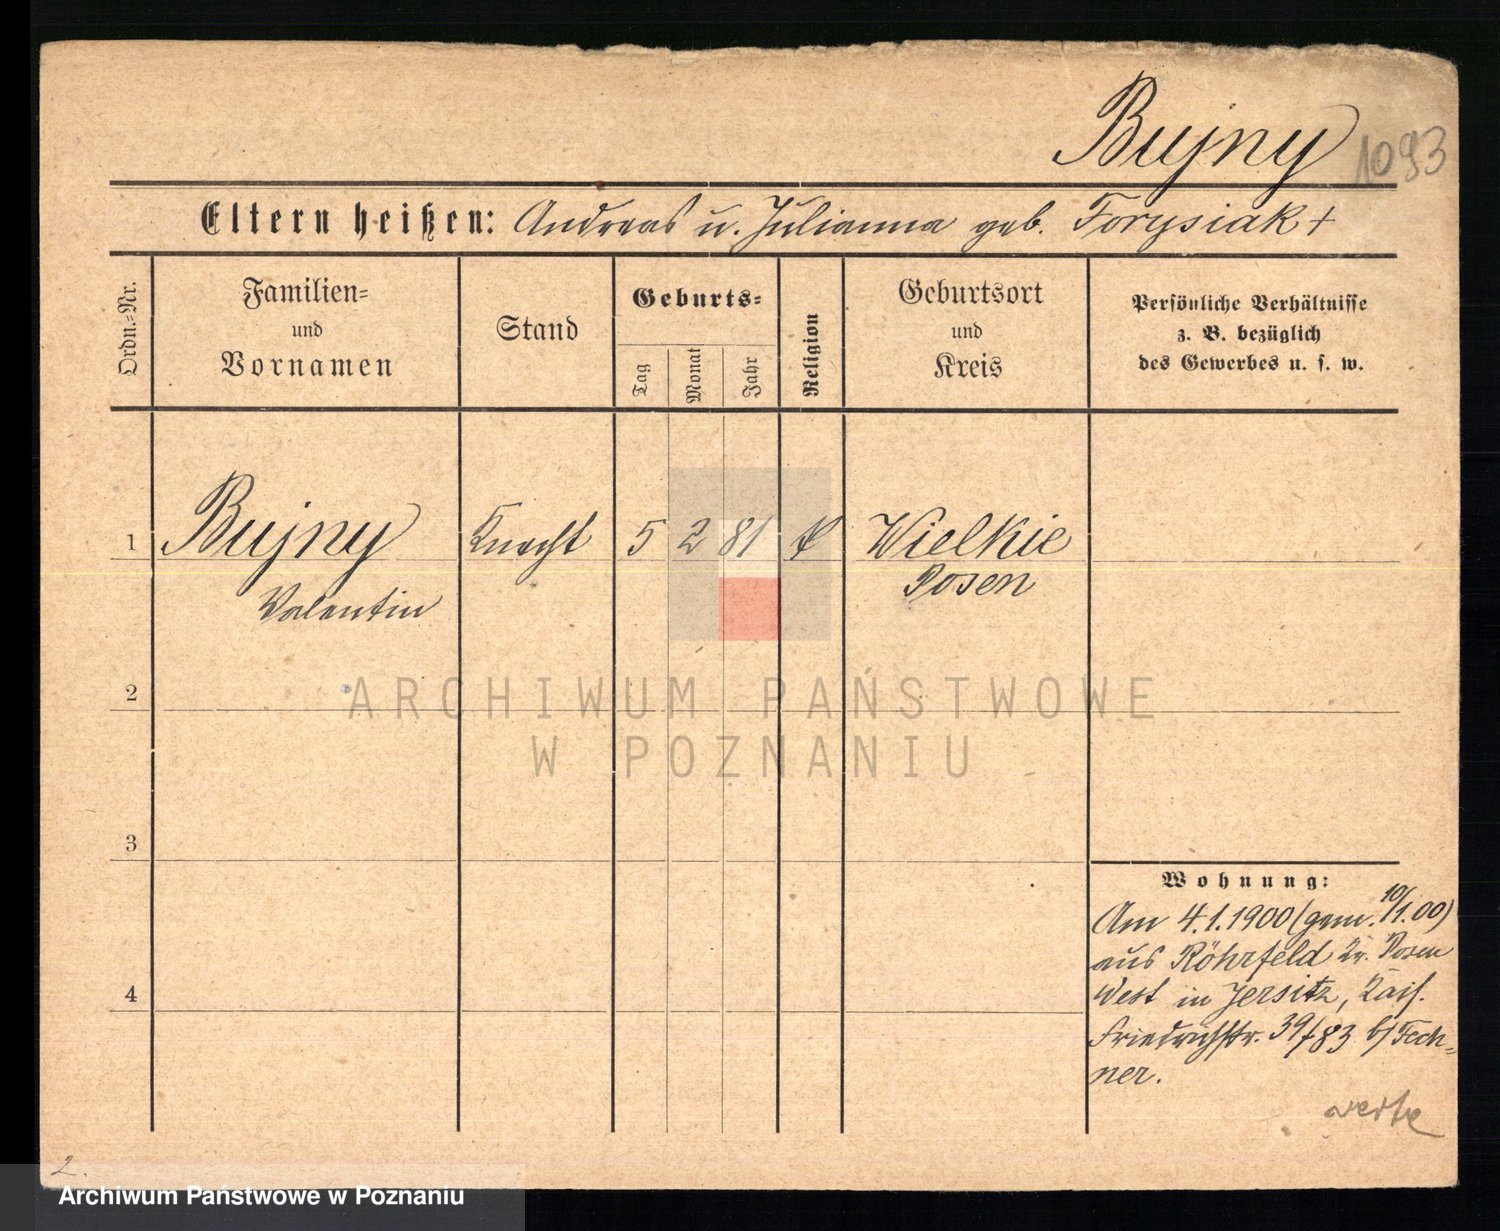 Bujny 1093
Eltern heißen: Andreas u. Julianna geb. Forysiak +
Ordn.=Nr.
Familien=
und
Vornamen
Stand
Geburts=
Tag
Monat
Jahr
Religion
Geburtsort
und
Kreis
Persönliche Verhältnisse
z. B. bezüglich
des Gewerbes u. s. w.
1 Bujny Knecht 5 2 81 k Wielkie
Valentin Posen
2
3
4
Wohnung:
Am 4.1.1900 (gem. 10/1.00)
aus Röhrfeld Kr. Posen
West in Jersitz, Kais.
Friedrichstr. 39/83 b/Fech=
ner.
2.
ARCHIWUM PAŃSTWOWE
W POZNANIU
Archiwum Państwowe w Poznaniu